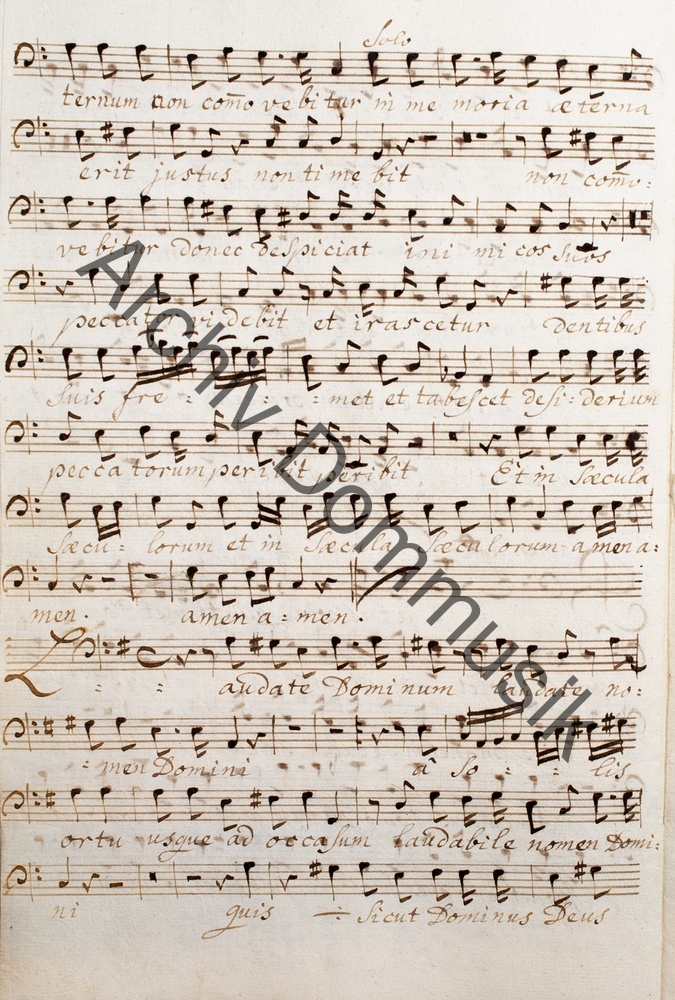 Solo
ternum non com̄ovebitur in memoria æterna
erit justus non timebit non com̄o:
vebitur donec despiciat inimicos suos
peccator videbit et irascetur dentibus
suis fre - : - : - met et tabescet desi: derium
peccatorum peribit peribit Et in sæcula
sæcu : lorum et in sæcula sæculorum amen a:
men. amen a: men.
Laudate Dominum laudate no:
: men Domini â so : : lis
ortu usque ad occasum laudabile nomen Domi:
ni quis ÷ sicut Dominus Deus
Archiv Dommusik